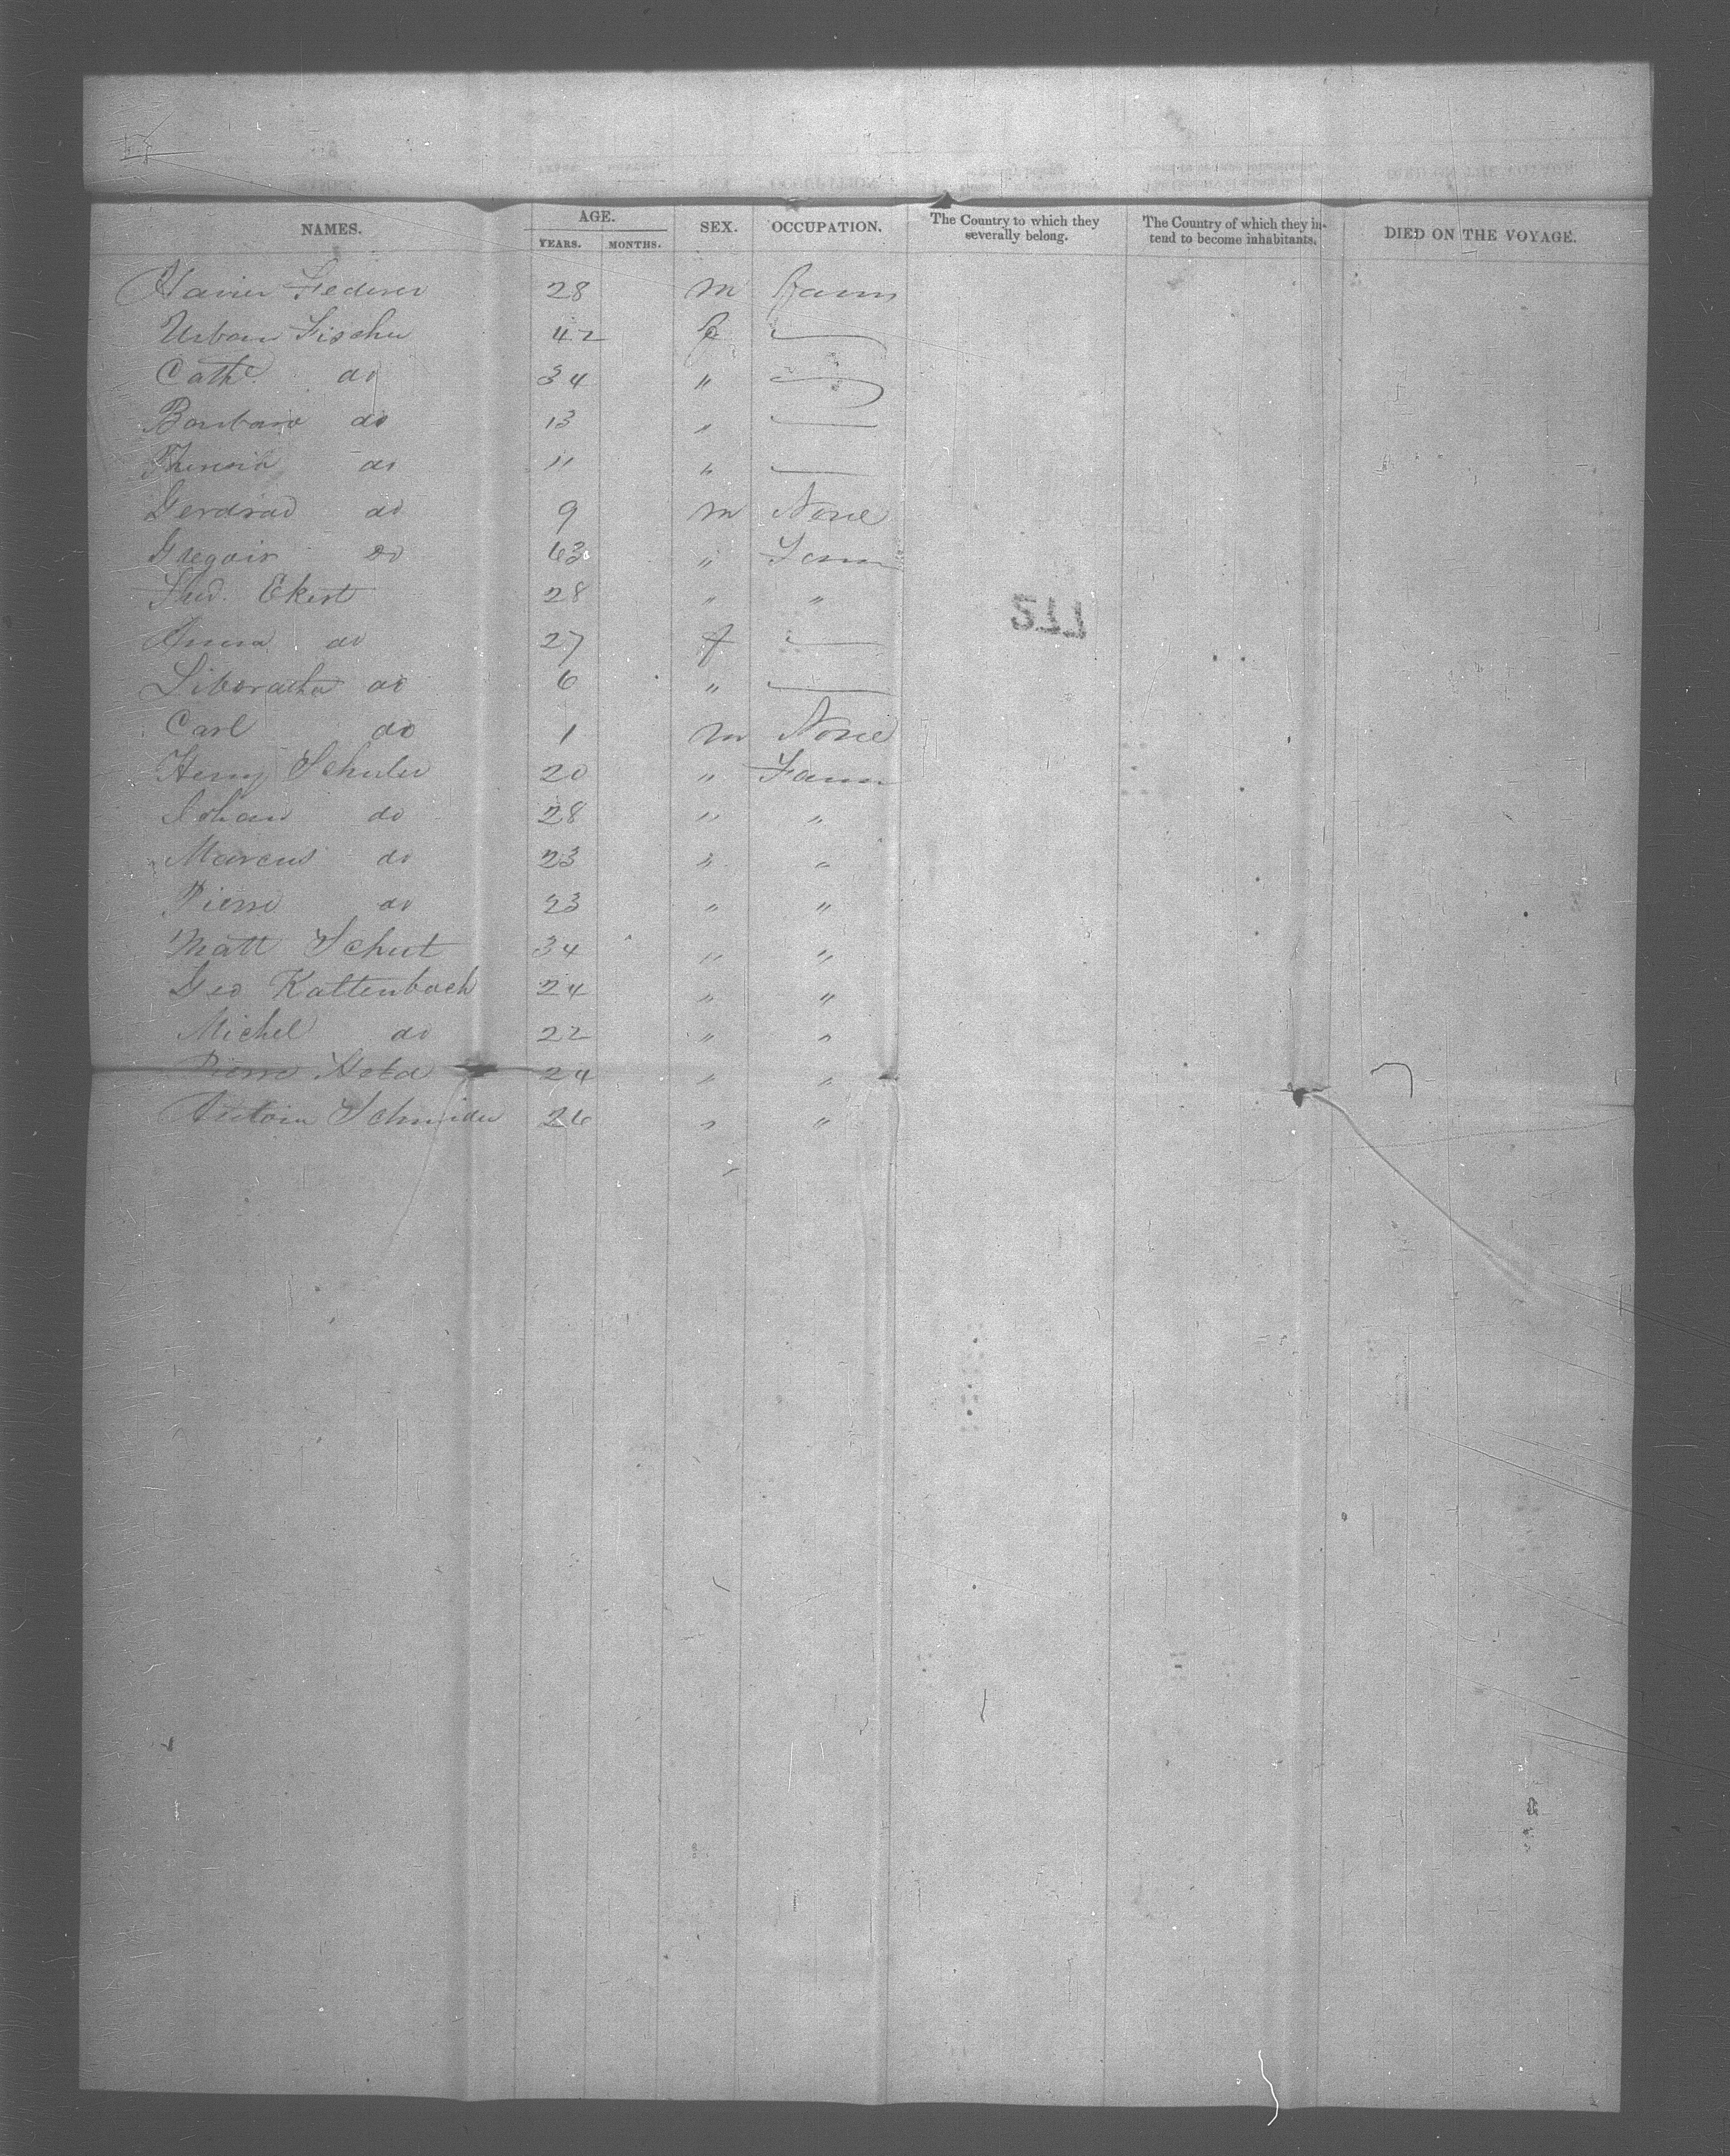 NAMES. AGE. YEARS. MONTHS. SEX. OCCUPATION. The Country to which they severally belong. The Country of which they intend to become inhabitants. DIED ON THE VOYAGE.
Xavier Federer 28 m Farm
Urban Fischer 42 f
Cathe do 34 "
Barbara do 13 "
Theresia do 11 "
Gerdrad do 9 m None
Gregoir do 63 " Farm
Fred. Ekert 28 " "
Anna do 27 f
Liboratha do 6 "
Carl do 1 m None
Henry Schuler 20 " Farm
Johan do 28 " "
Marcus do 23 " "
Pierre do 23 " "
Matt Schut 34 " "
Geo Kaltenbach 24 " "
Michel do 22 " "
Pierre 24 " "
Antoin Schnider 26 " "